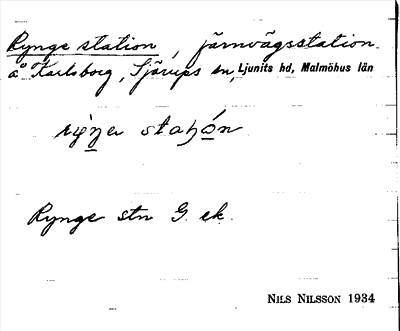 Rynge station, järnvägsstation
å Karlsborg, Sjörups sn, Ljunits hd, Malmöhus län
stn G. ek.
Rynge
NILS NILSSON 1934